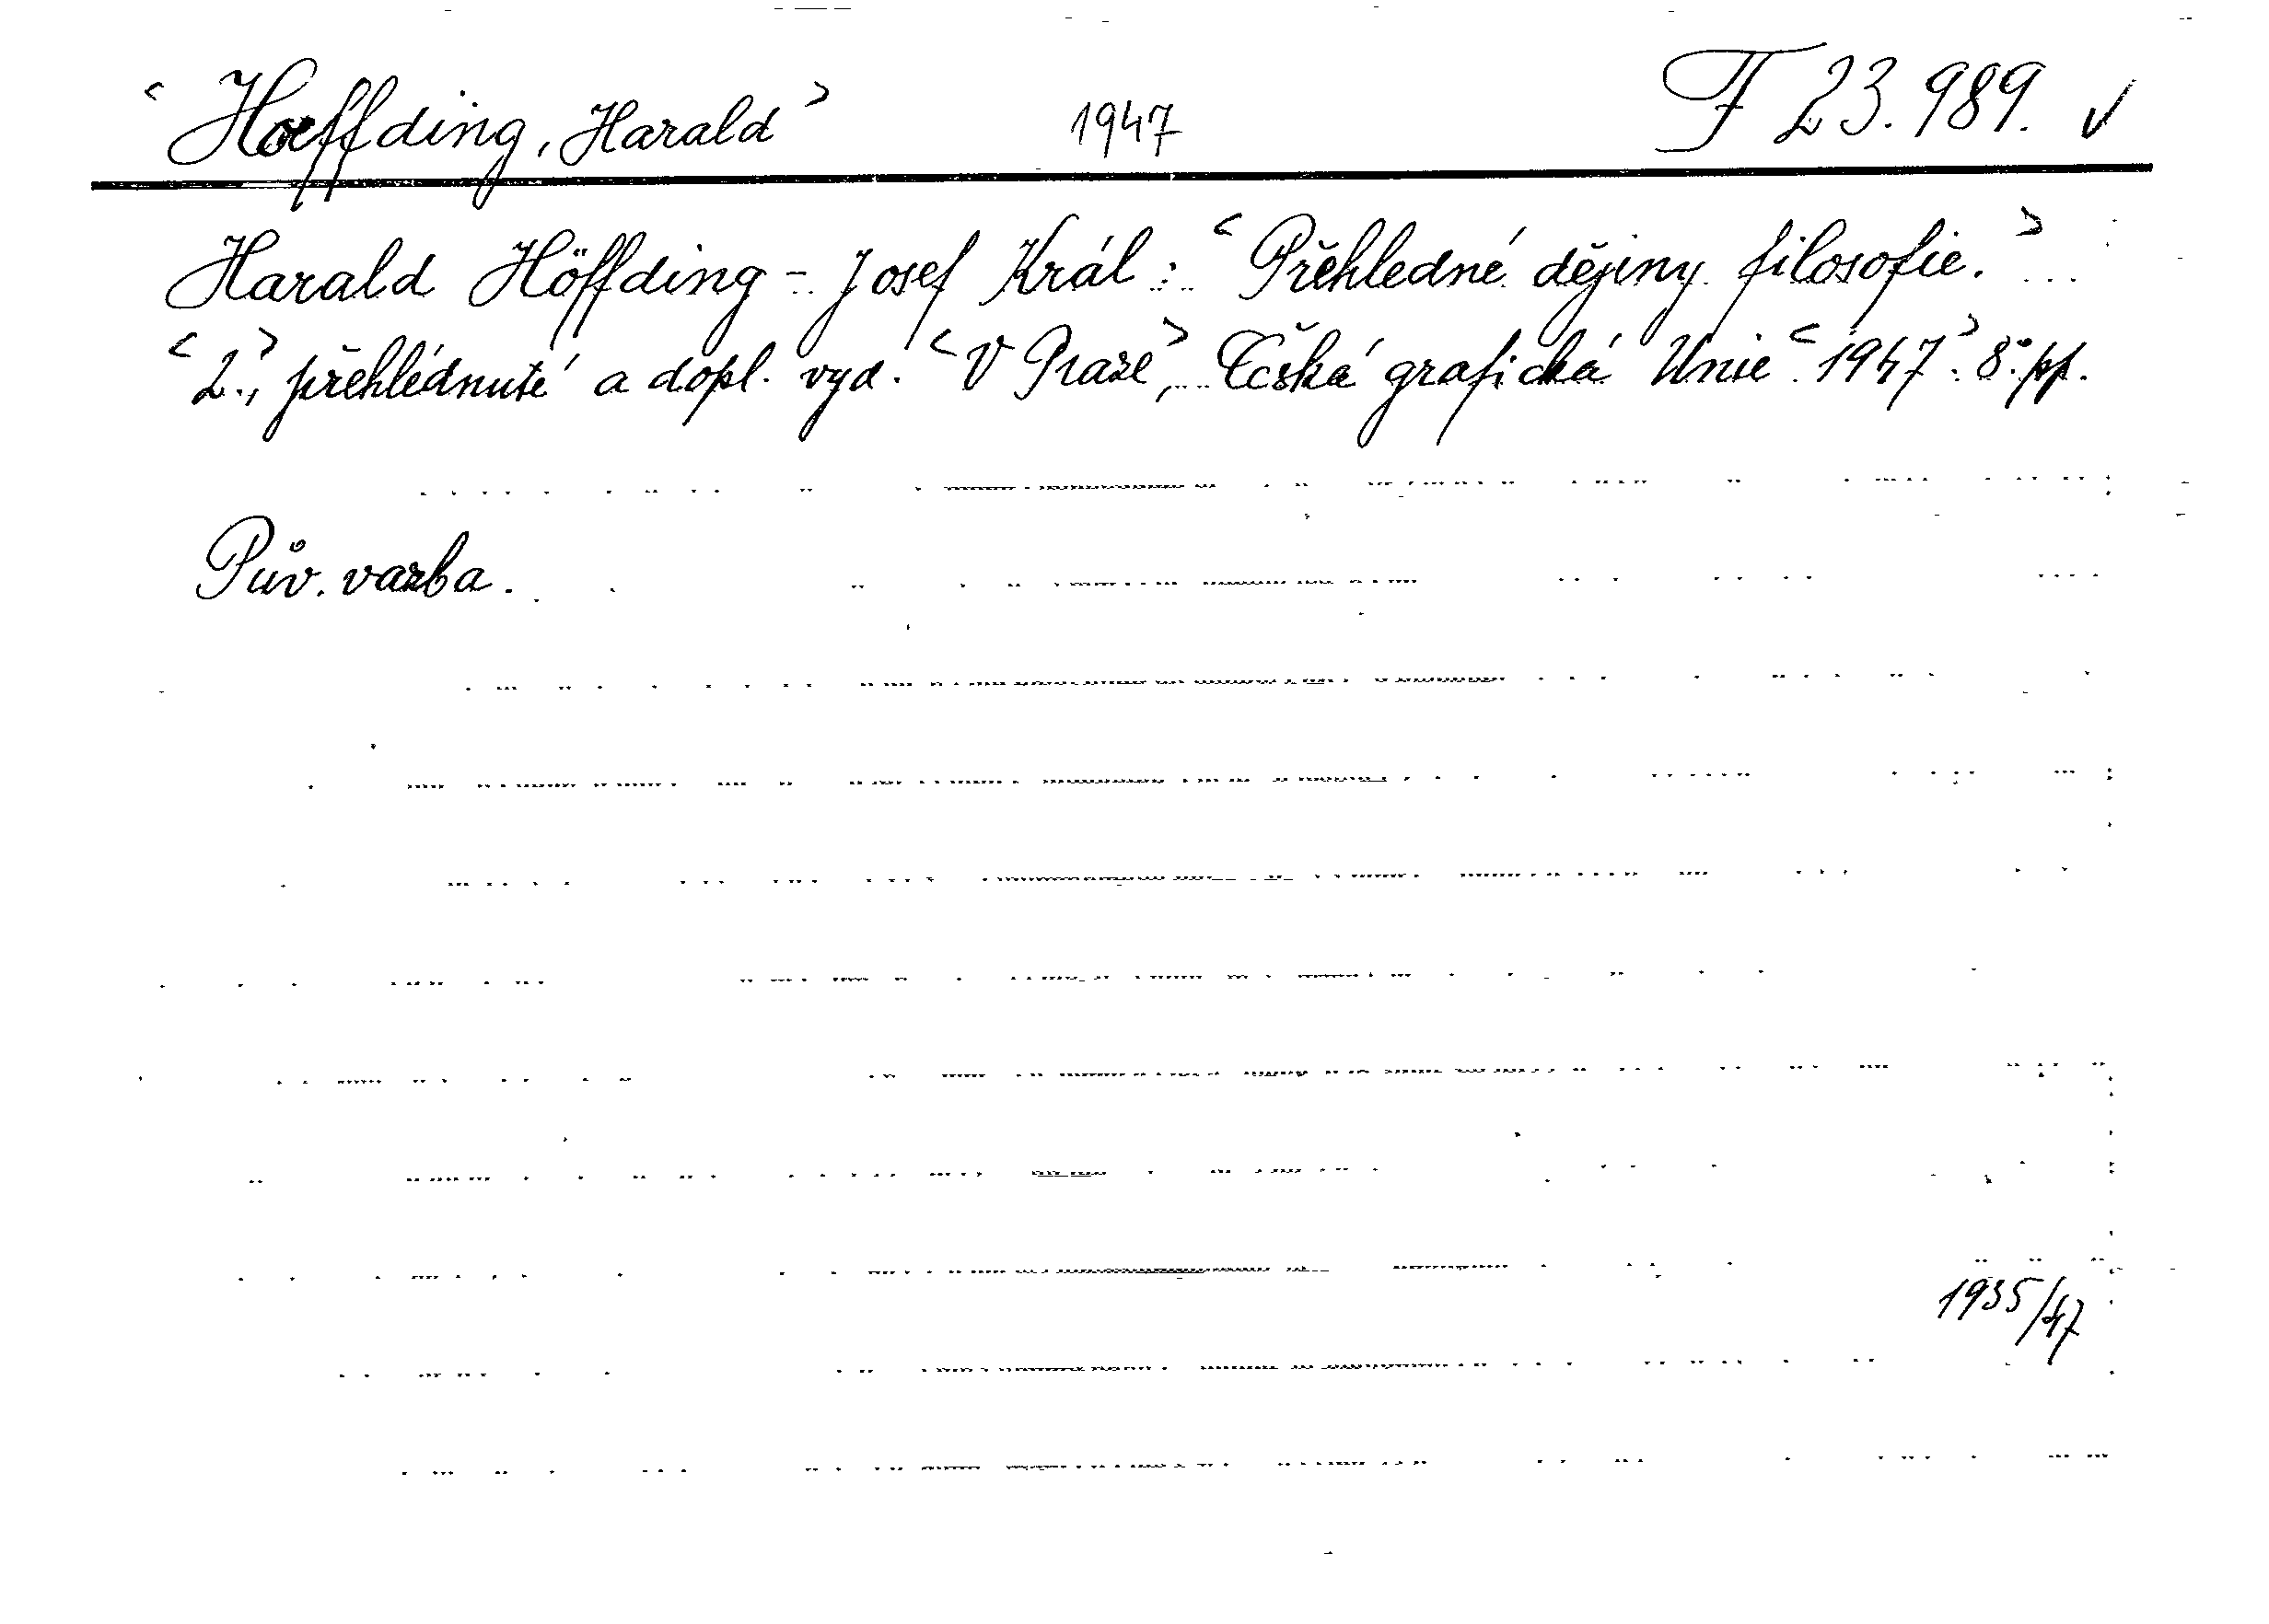 <Hoeffding, Harald> 1947 F 23.989. ✓
Harald Höffding - Josef Král: <Přehledné dějiny filosofie.>
<2.,> přehlédnuté a dopl. vyd. <V Praze>, Česká grafická Unie <1947>. 8°. pp.
Pův. vazba.
1935/47